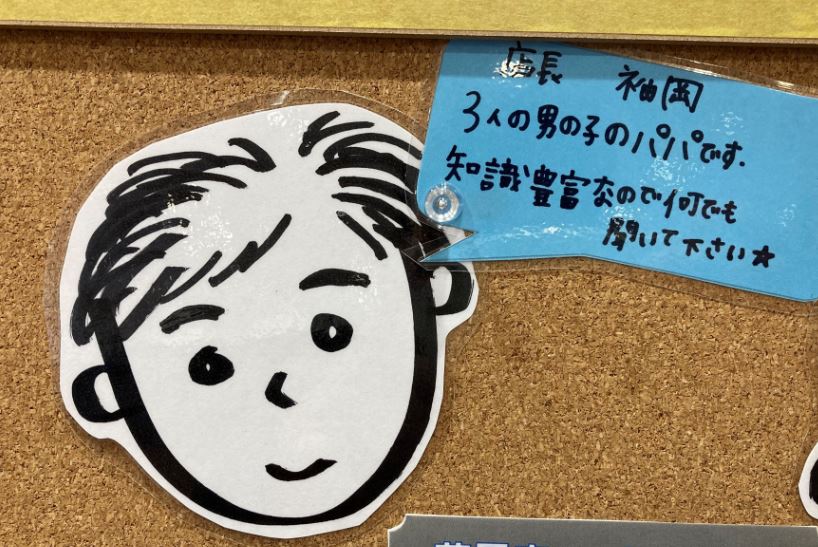 店長 袖岡
3人の男の子のパパです.
知識豊富なので何でも
聞いて下さい☆